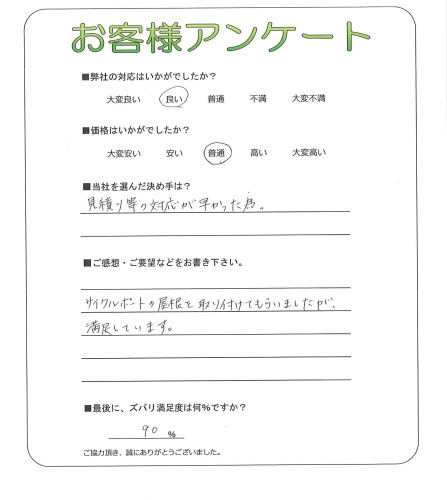 お客様アンケート
■弊社の対応はいかがでしたか？
大変良い 良い 普通 不満 大変不満
■価格はいかがでしたか？
大変安い 安い 普通 高い 大変高い
■当社を選んだ決め手は？
見積り等の対応が早かった為。
■ご感想・ご要望などをお書き下さい。
サイクルポートの屋根を取り付けてもらいましたが、
満足しています。
■最後に、ズバリ満足度は何%ですか？
90 %
ご協力頂き、誠にありがとうございました。